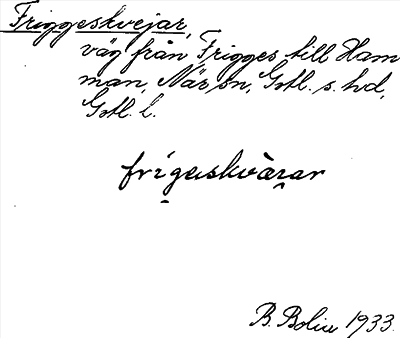 Friggeskvejar,
väg från Frigges till Ham
man, När sn, Gotl. s. hd,
Gotl. l.
frígeskvàrar
B. Bolin 1933.